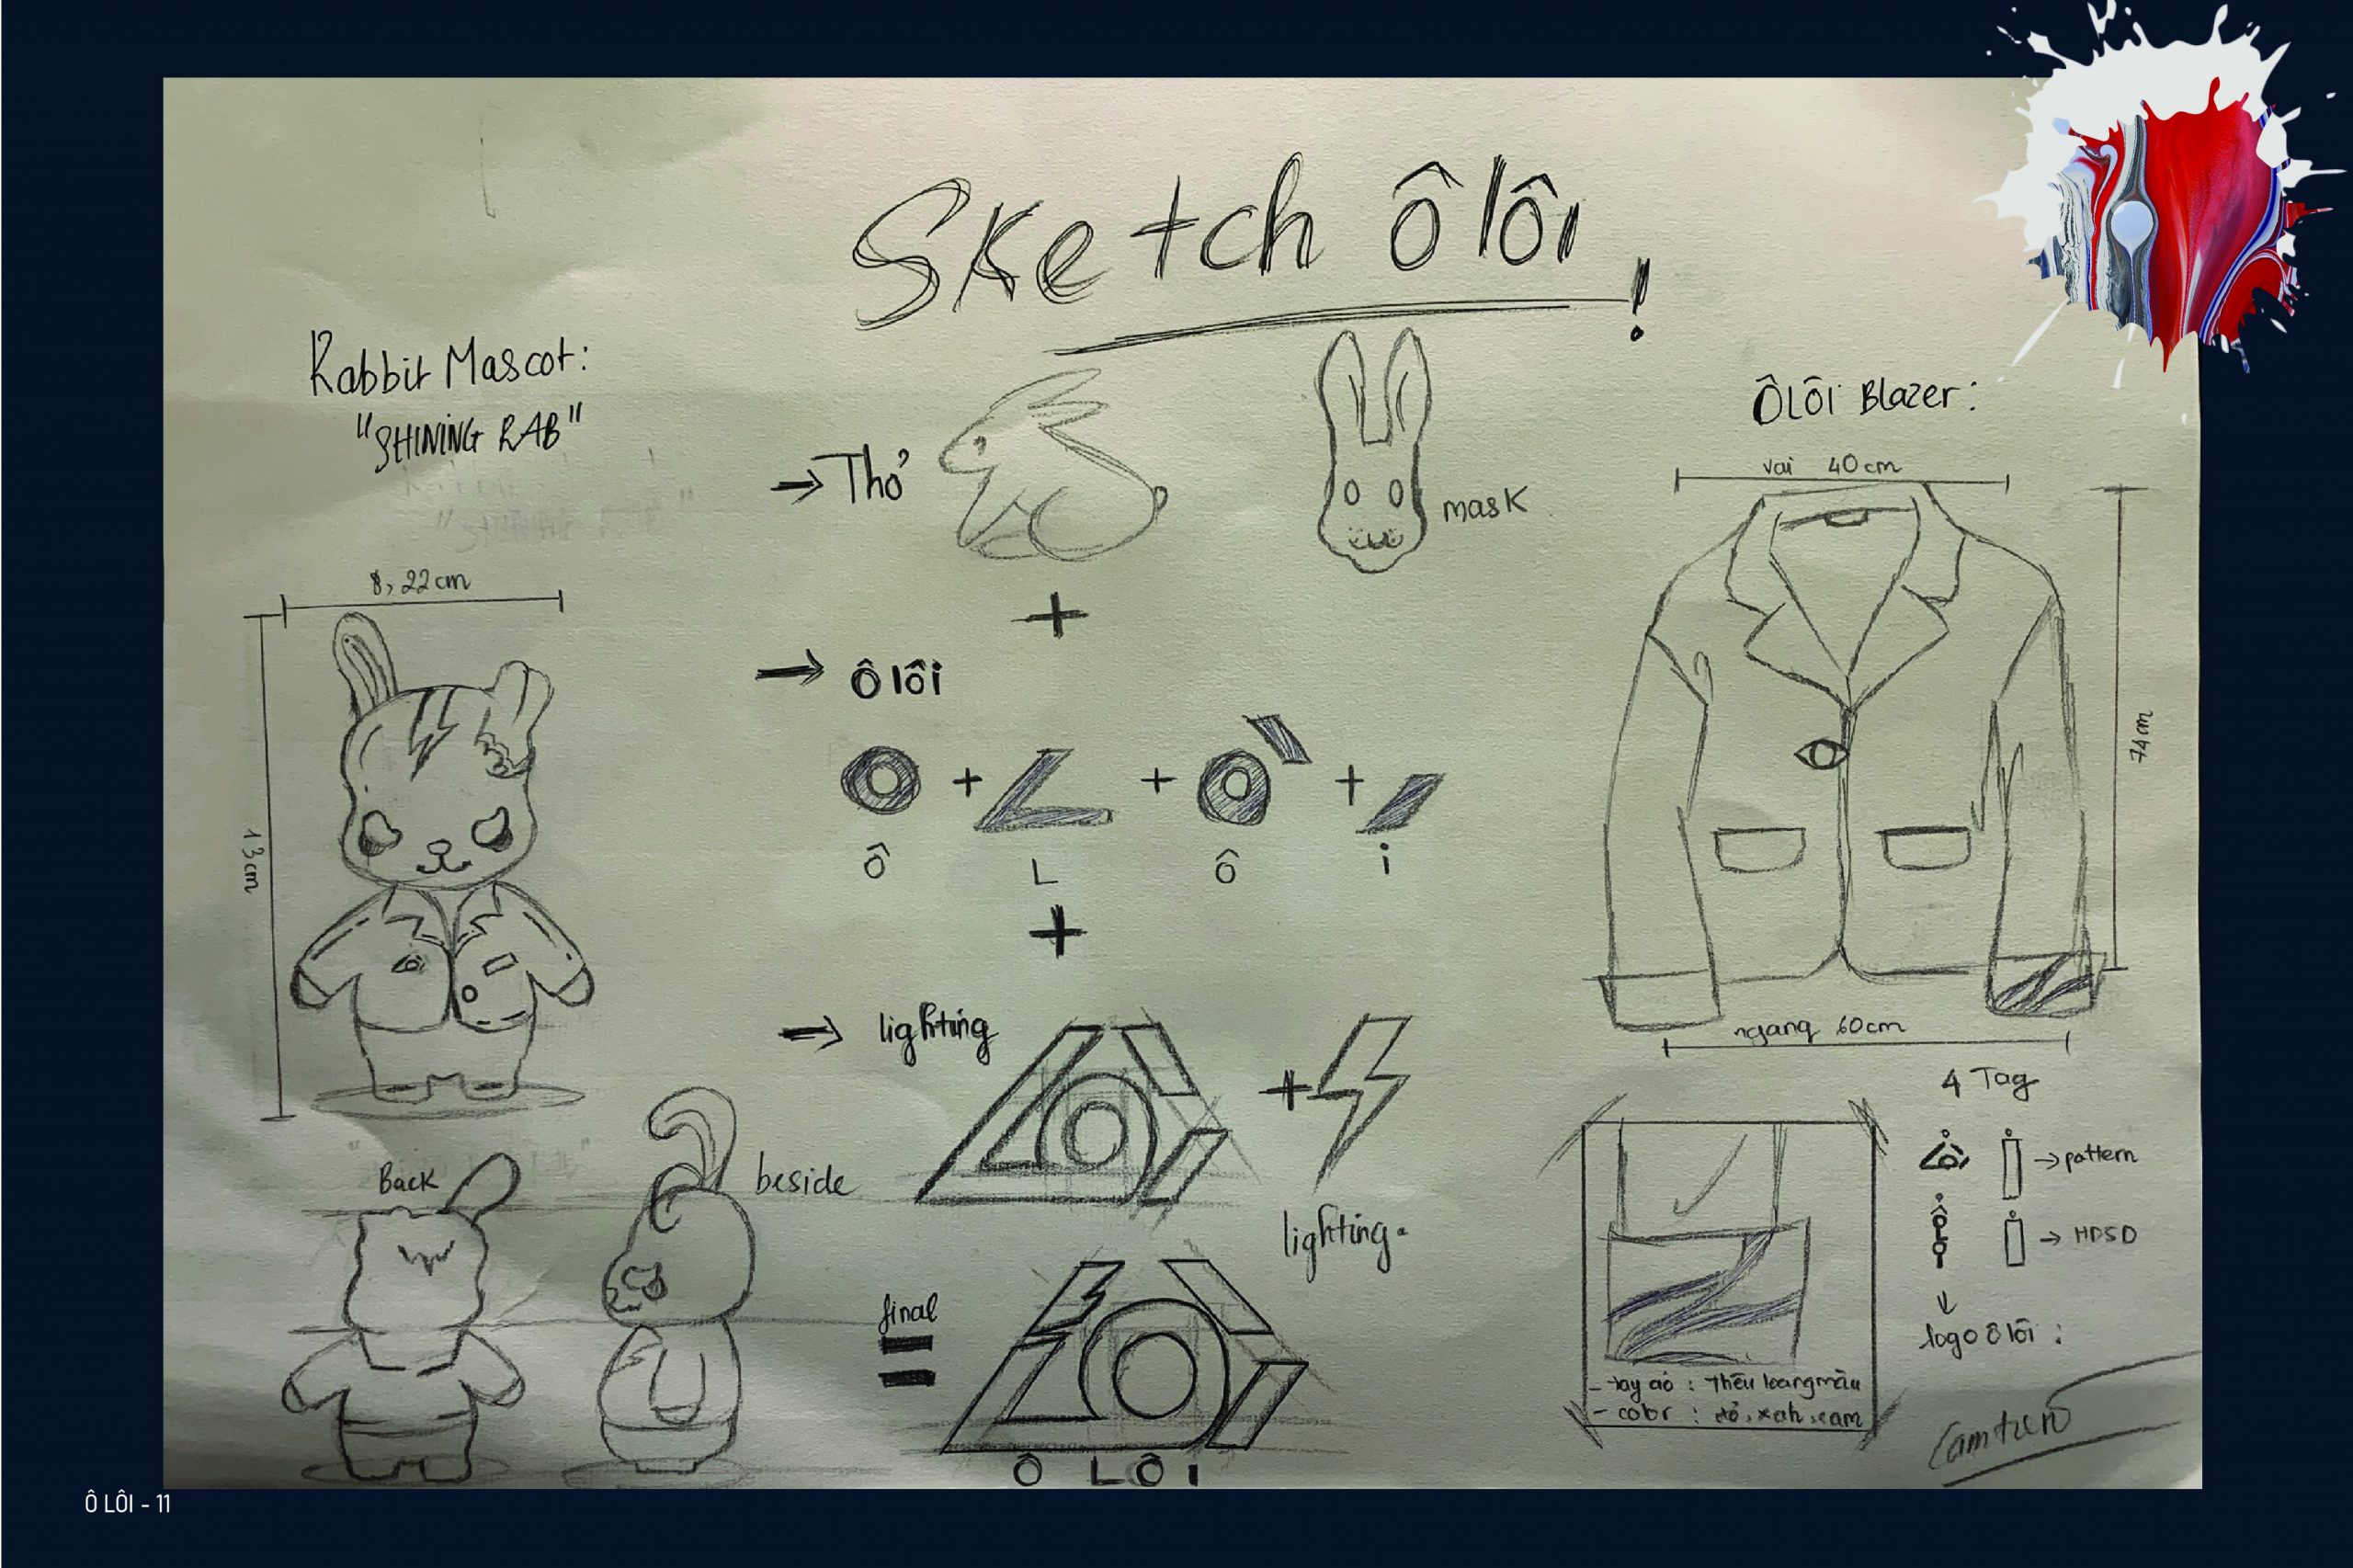 Sketch Ô lôi !
Rabbit Mascot:
"SHINING RAB"
8,22cm
13cm
Back
beside
→ Thỏ
mask
+
→ Ô lôi
+ + +
Ô L Ô i
+
→ lighting
+
lighting.
final
=
Ô LÔI
ÔLÔi Blazer:
vai 40cm
74cm
ngang 60cm
4 Tag
→ pattern
→ HDSD
logo ô lôi :
- tay áo : Thêu loang màu
- color :
Ô LÔI - 11